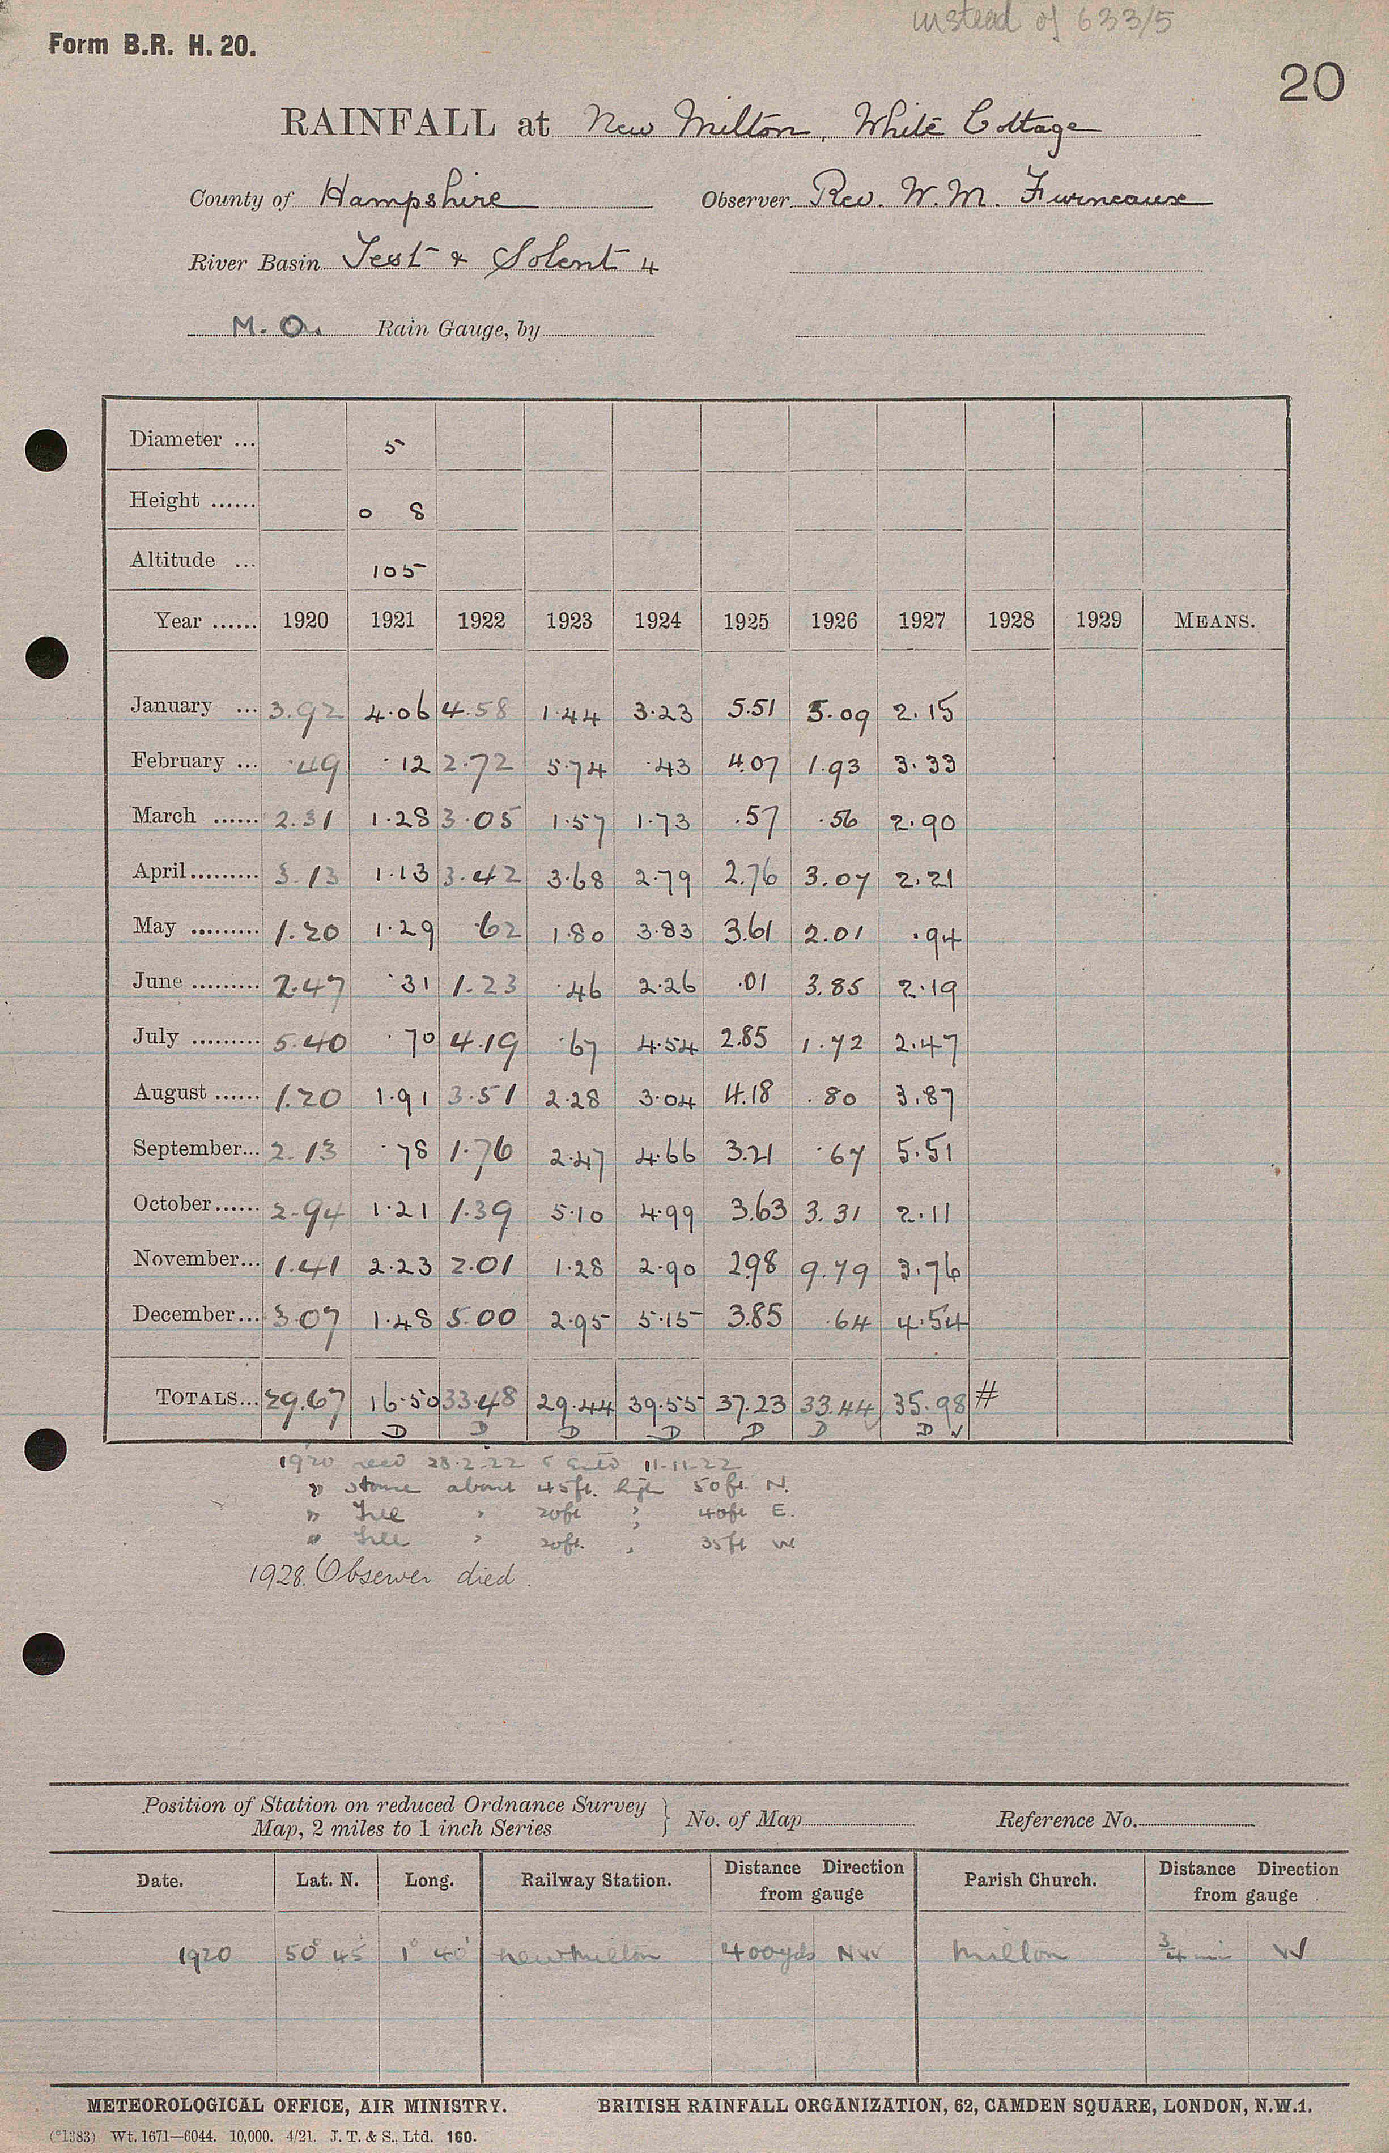 instead of 633/5
Form B.R. H. 20.
20
RAINFALL at New Milton, White Cottage
County of Hampshire Observer Rev. W. M. Furneaux
River Basin Test & Solent 4
M.O. Rain Gauge, by
Diameter ... 5
Height ...... 0 8
Altitude ... 105
Year ...... 1920 1921 1922 1923 1924 1925 1926 1927 1928 1929 MEANS.
January ... 3.92 4.06 4.58 1.44 3.23 5.51 5.09 2.15
February ... .49 .12 2.72 5.74 .43 4.07 1.93 3.33
March ...... 2.31 1.28 3.05 1.57 1.73 .57 .56 2.90
April......... 3.13 1.13 3.42 3.68 2.79 2.76 3.07 2.21
May ......... 1.20 1.29 .62 1.80 3.83 3.61 2.01 .94
June ......... 2.47 .31 1.23 .46 2.26 .01 3.85 2.19
July ......... 5.40 .70 4.19 .67 4.54 2.85 1.72 2.47
August ...... 1.20 1.91 3.51 2.28 3.04 4.18 .80 3.87
September... 2.13 .78 1.76 2.47 4.66 3.21 .67 5.51
October...... 2.94 1.21 1.39 5.10 4.99 3.63 3.31 2.11
November... 1.41 2.23 2.01 1.28 2.90 2.98 9.79 3.76
December... 3.07 1.48 5.00 2.95 5.15 3.85 .64 4.54
TOTALS... 29.67 16.50 33.48 29.44 39.55 37.23 33.44 35.98 #
D D D D D D D ✓
1920 recd 28.2.22 11-11-22
" stone about 45ft. high 50ft N.
" Tree " 20ft " 40ft E.
" Tree " 20ft. " 35ft W
1928. Observer died.
Position of Station on reduced Ordnance Survey
Map, 2 miles to 1 inch Series } No. of Map Reference No.
Date. Lat. N. Long. Railway Station. Distance Direction from gauge Parish Church. Distance Direction from gauge
1920 50° 45' 1° 40' New Milton 400yds NW Milton ¾ mi W
METEOROLOGICAL OFFICE, AIR MINISTRY. BRITISH RAINFALL ORGANIZATION, 62, CAMDEN SQUARE, LONDON, N.W.1.
(*1383) Wt. 1671—6044. 10,000. 4/21. J. T. & S., Ltd. 160.